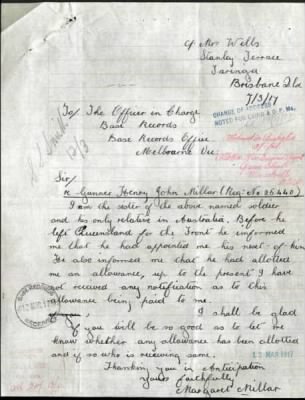 c/o Mrs Wells
Stanley Terrace
Taringa
Brisbane Qld
7/3/17
CHANGE OF ADDRESS
NOTED FOR
To/ The Officer in Charge
Base Records
Base Records Office
Melbourne Vic
Sir/
re Gunner Henry John Millar (Reg. No 26440)
I am the sister of the above named soldier
and his only relative in Australia. Before he
left Queensland for the Front he informed
me that he had appointed me his next of kin.
He also informed me that he had allotted
me an allowance, up to the present I have
not received any notification as to this
allowance being paid to me.
I shall be glad
if you will be so good as to let me
know whether any allowance has been allotted
and if so who is receiving same.
13 MAR 1917
Thanking you in anticipation
Yours faithfully
Margaret Millar